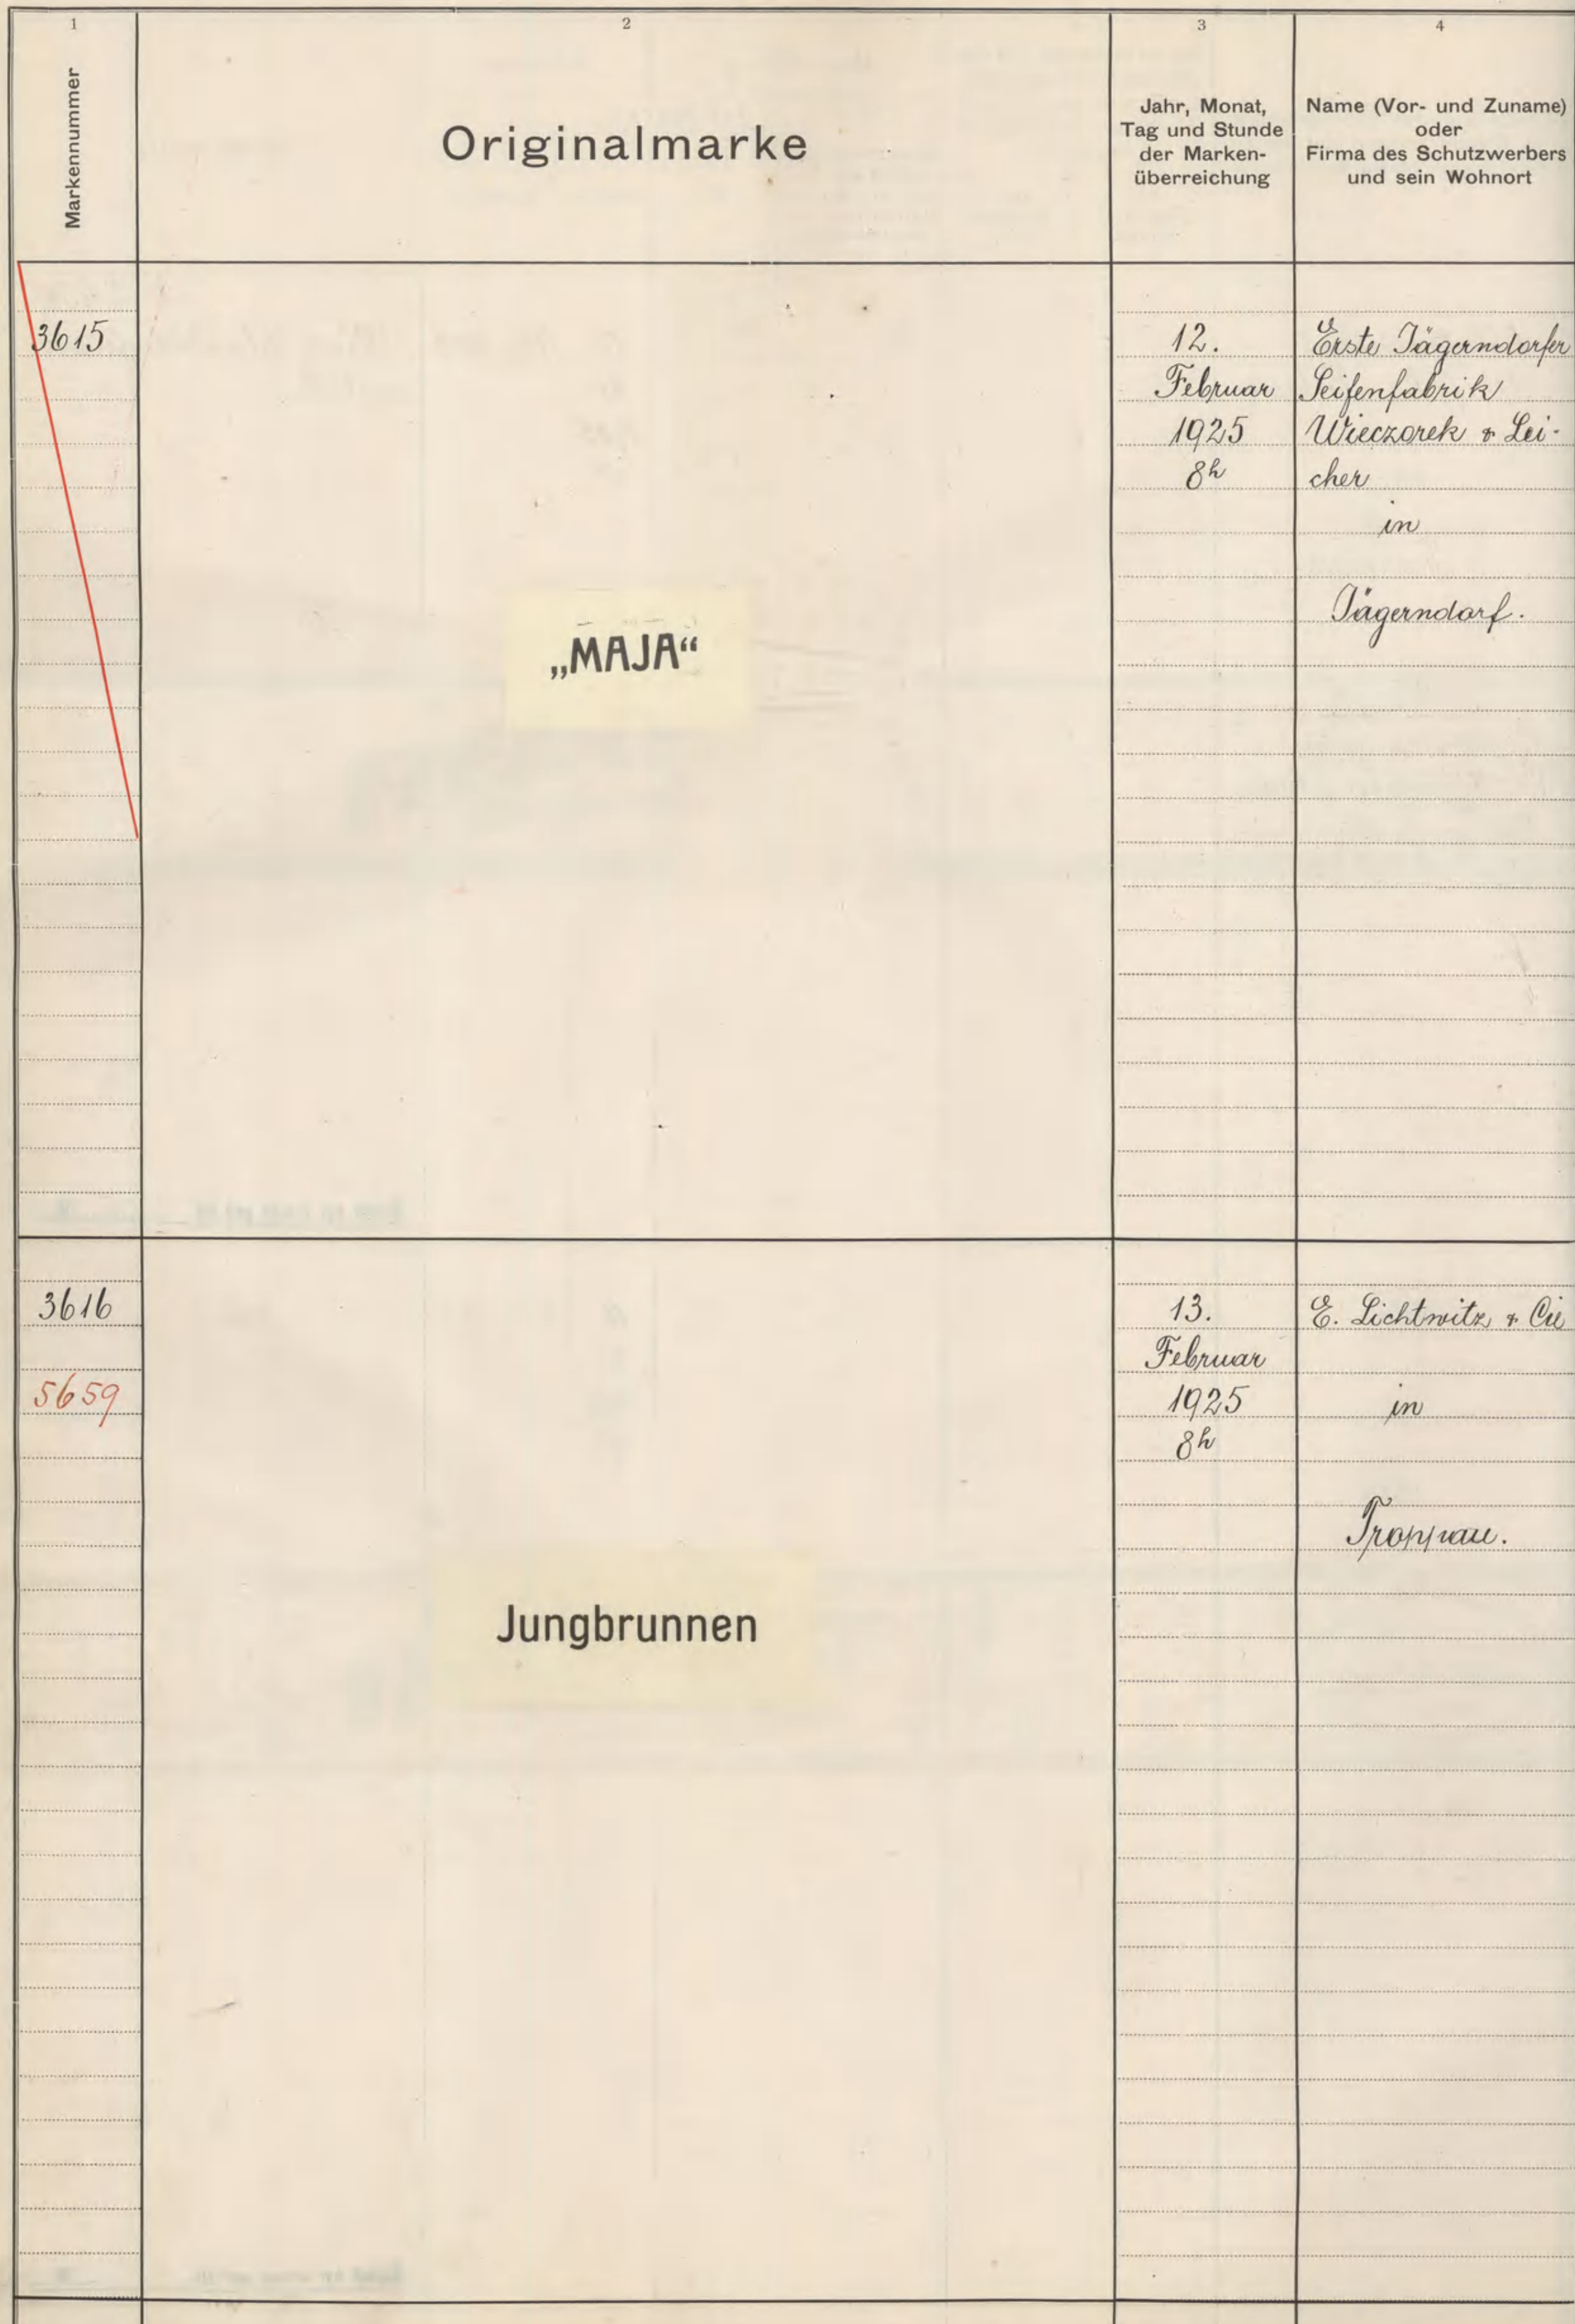 1
2
3
4
Markennummer
Originalmarke
Jahr, Monat,
Tag und Stunde
der Marken-
überreichung
Name (Vor- und Zuname)
oder
Firma des Schutzwerbers
und sein Wohnort
3615
„MAJA“
12.
Februar
1925
8h
Erste Jägerndorfer
Seifenfabrik
Wieczorek & Lei-
cher
in
Jägerndorf.
3616
5659
Jungbrunnen
13.
Februar
1925
8h
E. Lichtwitz & Cie
in
Troppau.